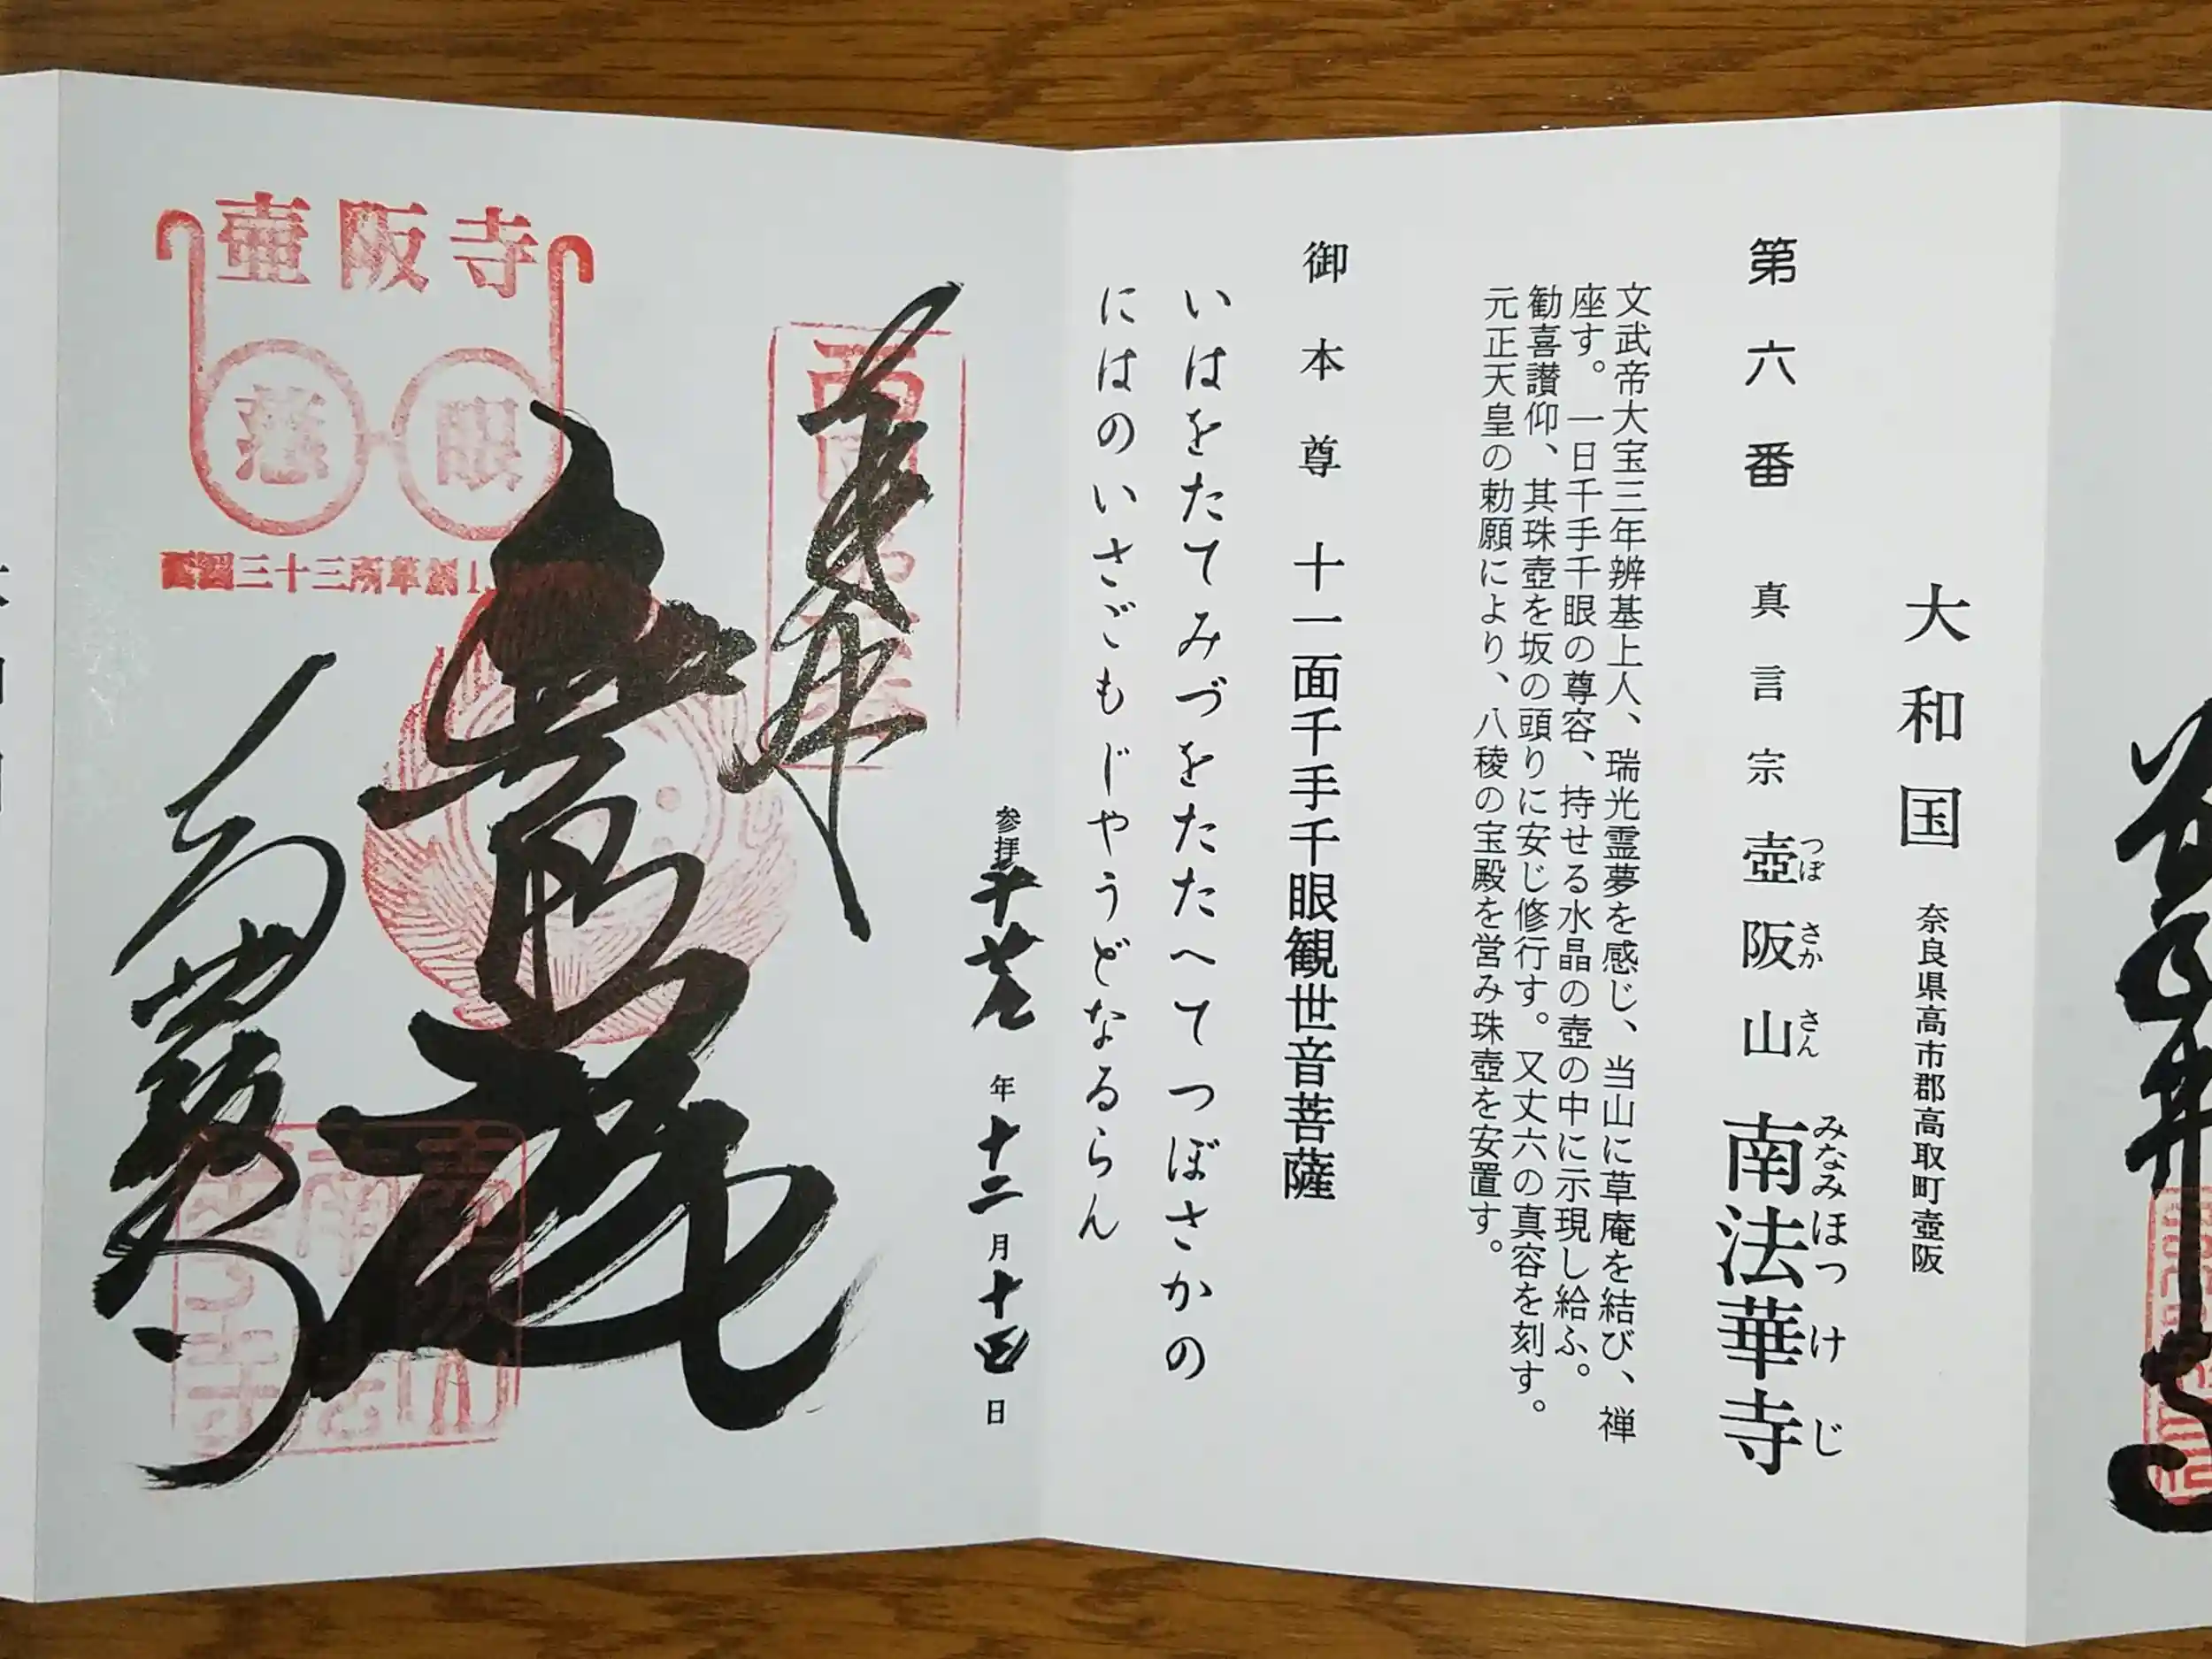 大和国 奈良県高市郡高取町壺阪
第六番 真言宗 壺阪山 南法華寺
つぼ さか さん みなみほつけじ
文武帝大宝三年辨基上人、瑞光霊夢を感じ、当山に草庵を結び、禅
座す。一日千手千眼の尊容、持せる水晶の壺の中に示現し給ふ。
勧喜讃仰、其珠壺を坂の頭りに安じ修行す。又丈六の真容を刻す。
元正天皇の勅願により、八稜の宝殿を営み珠壺を安置す。
御本尊 十一面千手千眼観世音菩薩
いはをたてみづをたたへてつぼさかの
にはのいさごもじやうどなるらん
参拝 年十二月十四日
奉拝
普照殿
壷阪寺
慈眼
西国三十三所草創1